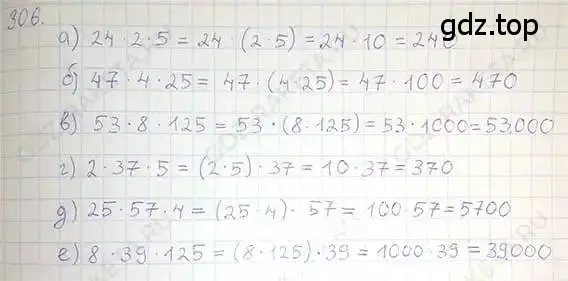 306.
gdz.top
а) 24 · 2 · 5 = 24 · (2 · 5) = 24 · 10 = 240
б) 47 · 4 · 25 = 47 · (4 · 25) = 47 · 100 = 470
в) 53 · 8 · 125 = 53 · (8 · 125) = 53 · 1000 = 53.000
г) 2 · 37 · 5 = (2 · 5) · 37 = 10 · 37 = 370
д) 25 · 57 · 4 = (25 · 4) · 57 = 100 · 57 = 5700
е) 8 · 39 · 125 = (8 · 125) · 39 = 1000 · 39 = 39.000